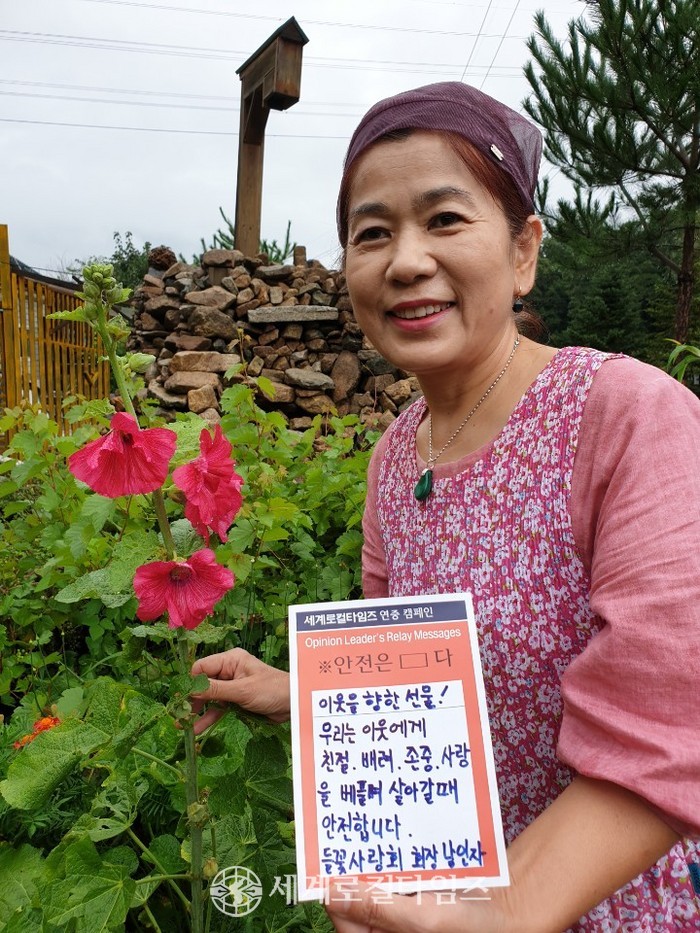 세계로컬타임즈 연중 캠페인
Opinion Leader's Relay Messages
※안전은 □ 다
이웃을 향한 선물!
우리는 이웃에게
친절. 배려. 존중. 사랑
을 베풀며 살아갈때
안전합니다.
들꽃사랑회 회장 남인자
세계로컬타임즈